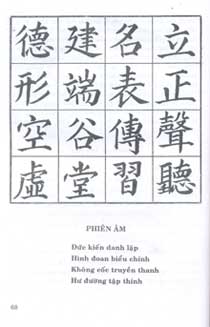 德建名立
形端表正
空谷傳聲
虛堂習聽
PHIÊN ÂM
Đức kiến danh lập
Hình đoan biểu chính
Không cốc truyền thanh
Hư đường tập thính
68